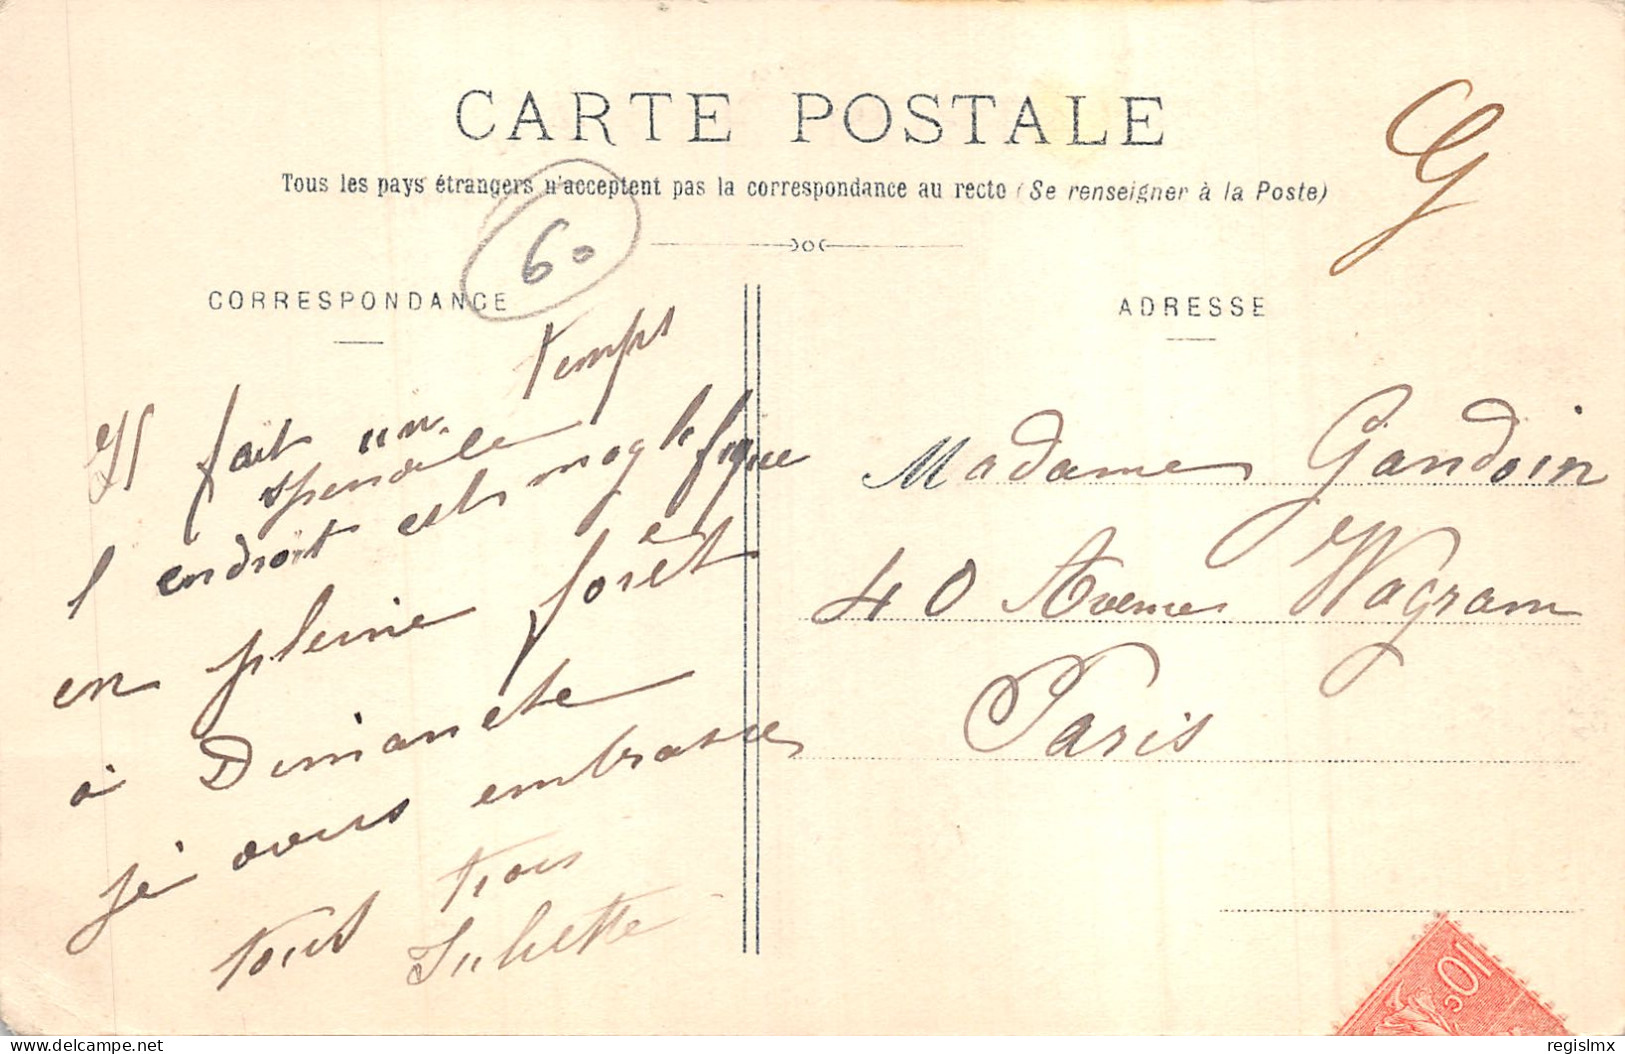 CARTE POSTALE
Tous les pays étrangers n'acceptent pas la correspondance au recto (Se renseigner à la Poste)
G
60
CORRESPONDANCE
Il fait un temps
l'endroit est magnifique
en pleine forêt
à Dimanche
je vous embrasse
tous trois
Juliette
ADRESSE
Madame Gandoin
40 Avenue Wagram
Paris
10c
delcampe.net
regislmx